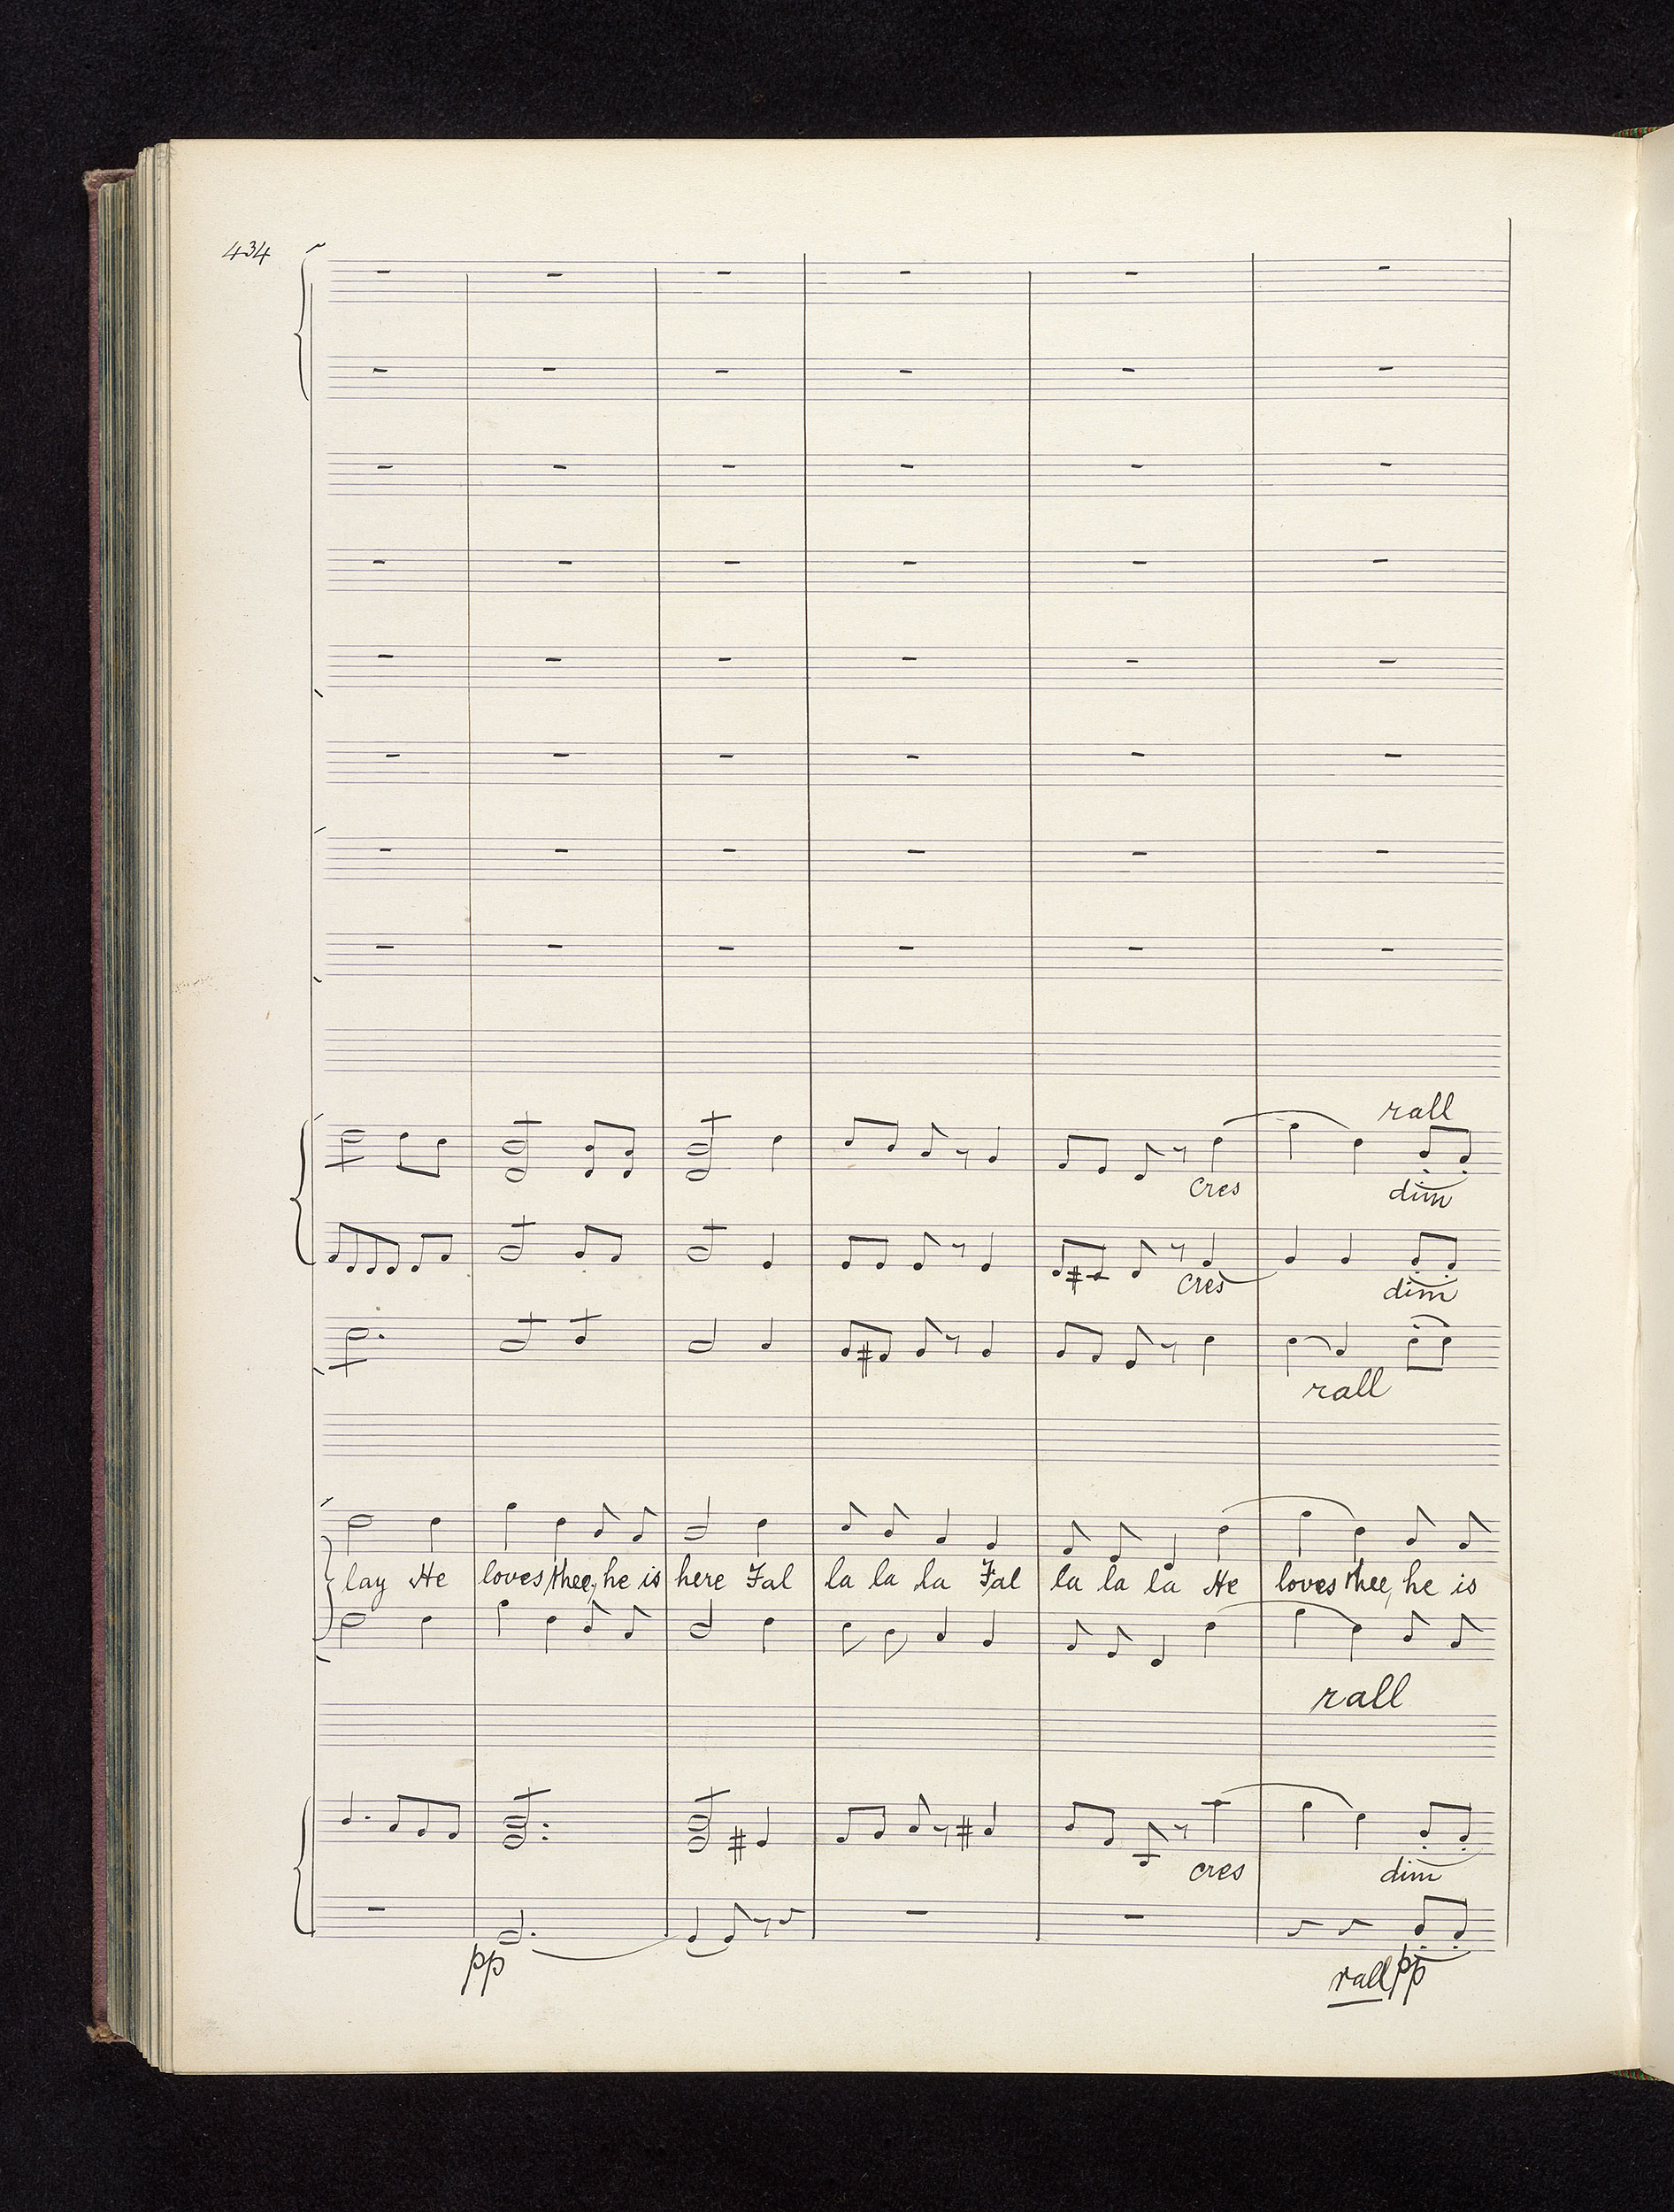 434
rall
cres dim
cres dim
rall
lay He loves thee, he is here Fal la la la Fal la la la He loves thee, he is
rall
cres dim
pp rall pp